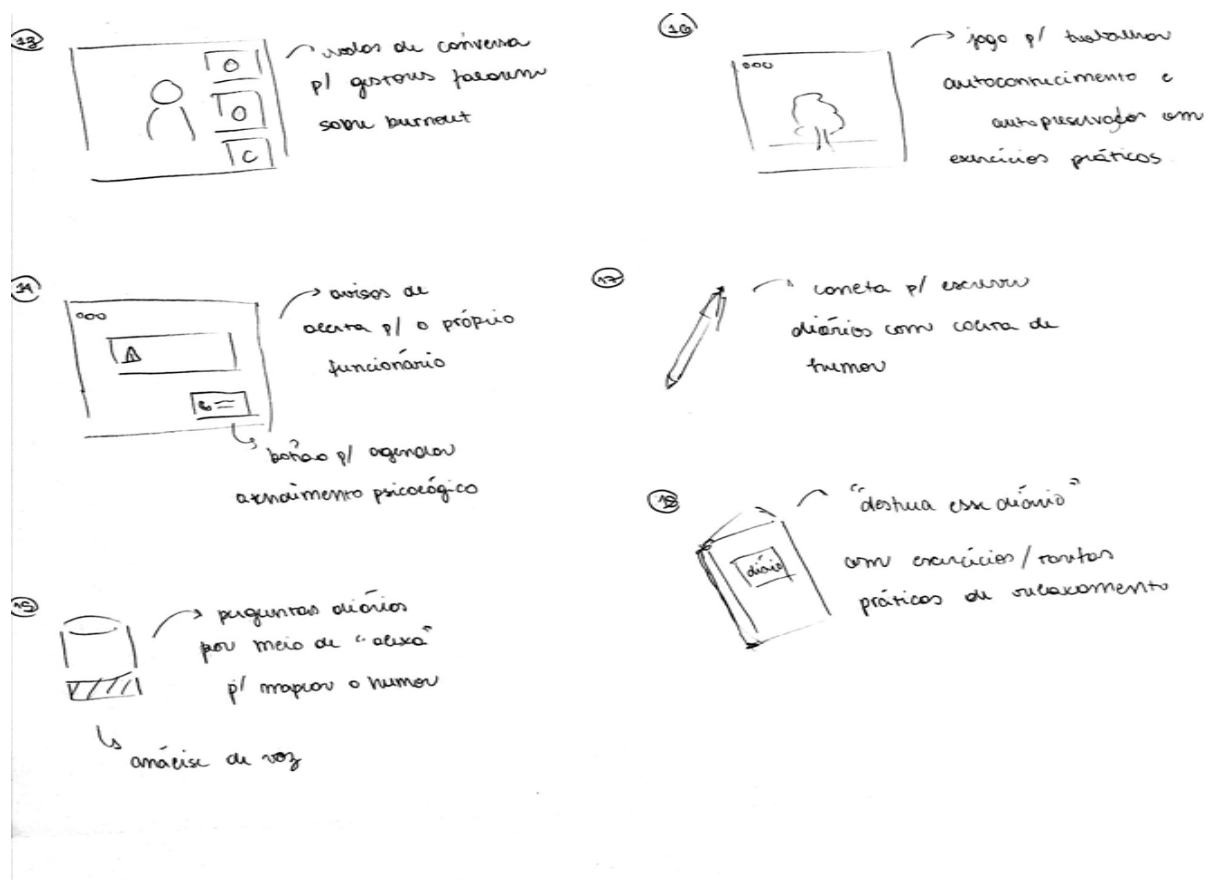 13
rodas de conversa
p/ gestores falarem
sobre burnout
14
avisos de
alerta p/ o próprio
funcionário
botão p/ agendar
atendimento psicológico
15
perguntas diárias
por meio de "alexa"
p/ mapear o humor
análise de voz
16
jogo p/ trabalhar
autoconhecimento e
autopreservação com
exercícios práticos
17
caneta p/ escrever
diários com coleta de
humor
18
"destrua esse diário"
com exercícios/tarefas
práticas de relaxamento
diário